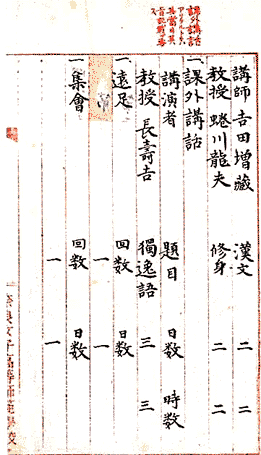 講師 吉田増藏 漢文 二 二
教授 蜷川龍夫 修身 二 二
一、課外講話
講演者 題目 日数 時数
教授 長壽吉 獨逸語 三 三
一、遠足 回数 日数
一 一
一、集會 回数 日数
一 一
奈良女子高等師範學校